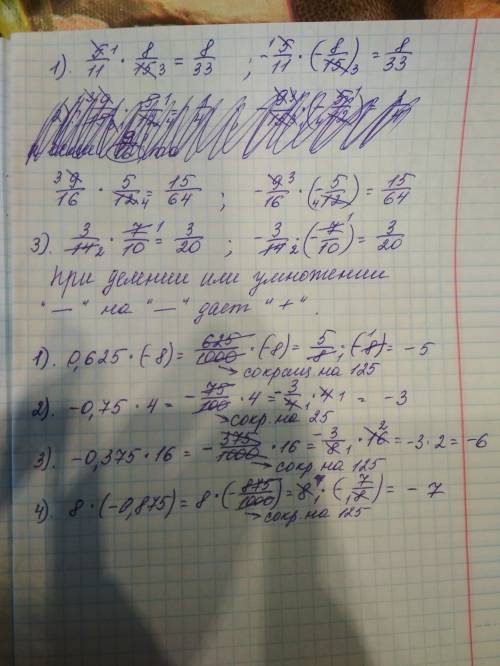 1). 5/11 · 8/15 = 8/33 ; -5/11 · (-8/15) = 8/33
9/16 · 5/12 = 15/64 ; -9/16 · (-5/12) = 15/64
3). 3/14 · 7/10 = 3/20 ; -3/14 · (-7/10) = 3/20
При делении или умножении
"—" на "—" дает "+".
1). 0,625 · (-8) = 625/1000 · (-8) = 5/8 · (-8) = -5
→ сокращ. на 125
2). -0,75 · 4 = -75/100 · 4 = -3/4 · 4 = -3
→ сокр. на 25
3). -0,375 · 16 = -375/1000 · 16 = -3/8 · 16 = -3 · 2 = -6
→ сокр. на 125
4). 8 · (-0,875) = 8 · (-875/1000) = 8 · (-7/8) = -7
→ сокр. на 125